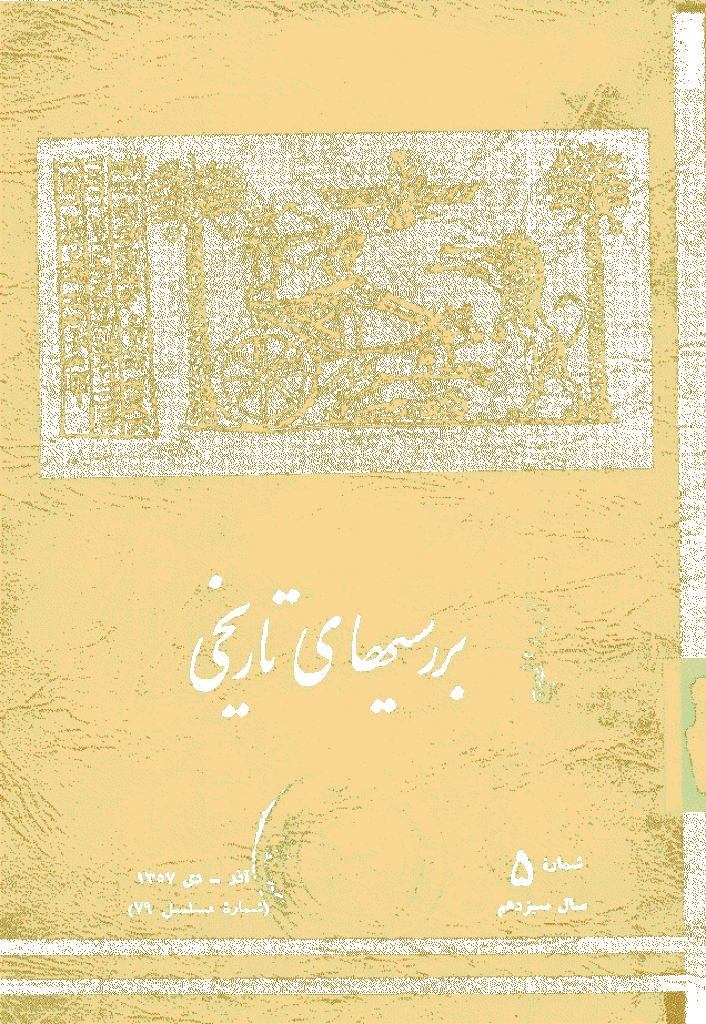 بررسیهای تاریخی
شمارهٔ ۵
سال سیزدهم
آذر ـ دی ۱۳۵۷
(شمارهٔ مسلسل ۷۹)